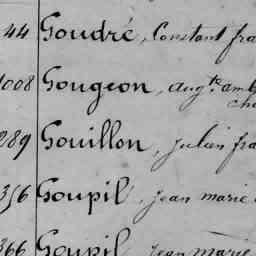 44 Goudré, Constant fra
1008 Gougeon, Augte amb
289 Gouillon, Julien fra
356 Goupil, Jean marie
366 Goupil, Jean marie